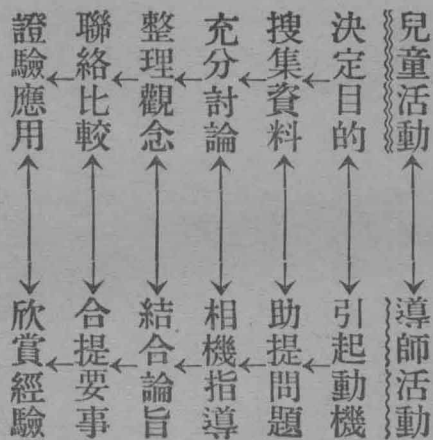 兒童活動
導師活動
決定目的
引起動機
搜集資料
助提問題
充分討論
相機指導
整理觀念
結合論旨
聯絡比較
合提要事
證驗應用
欣賞經驗